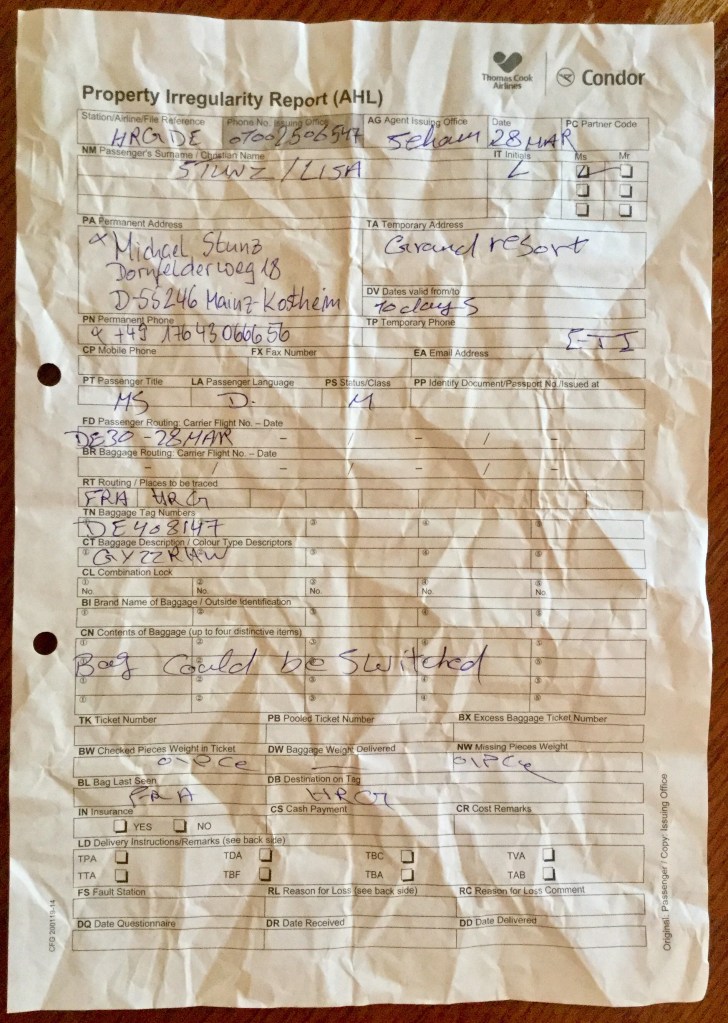 Thomas Cook
Airlines
Condor
Property Irregularity Report (AHL)
Station/Airline/File Reference Phone No. Issuing Office AG Agent Issuing Office Date PC Partner Code
HRGDE 07002506547 Seham 28 MAR
NM Passenger's Surname / Christian Name IT Initials Ms Mr
STUNZ / LISA L
PA Permanent Address TA Temporary Address
Michael Stunz Grand resort
Dornfelderweg 18
DV Dates valid from/to
D-55246 Mainz-Kostheim 10 days
PN Permanent Phone TP Temporary Phone
+49 176 43066656 ETI
CP Mobile Phone FX Fax Number EA Email Address
PT Passenger Title LA Passenger Language PS Status/Class PP Identity Document/Passport No./Issued at
MS D. M
FD Passenger Routing: Carrier Flight No. – Date
DE30 - 28MAR – / – / –
BR Baggage Routing: Carrier Flight No. – Date
– / – / – / –
RT Routing / Places to be traced
FRA HRG
TN Baggage Tag Numbers
DE408147 ③ ④ ⑤
CT Baggage Description / Colour Type Descriptors
① GY22RHW ③ ④ ⑤
CL Combination Lock
① ② ③ ④ ⑤
No. No. No. No. No.
BI Brand Name of Baggage / Outside Identification
① ② ③ ④ ⑤
CN Contents of Baggage (up to four distinctive items)
① ② ③ ④ ⑤
Bag Could be Switched
① ② ③ ④ ⑤
① ② ③ ④ ⑤
TK Ticket Number PB Pooled Ticket Number BX Excess Baggage Ticket Number
BW Checked Pieces Weight in Ticket DW Baggage Weight Delivered NW Missing Pieces Weight
01PCe — 01PCe
BL Bag Last Seen DB Destination on Tag
FRA HRG
IN Insurance CS Cash Payment CR Cost Remarks
YES NO
LD Delivery Instructions/Remarks (see back side)
TPA TDA TBC TVA
TTA TBF TBA TAB
FS Fault Station RL Reason for Loss (see back side) RC Reason for Loss Comment
DQ Date Questionnaire DR Date Received DD Date Delivered
Original: Passenger / Copy: Issuing Office